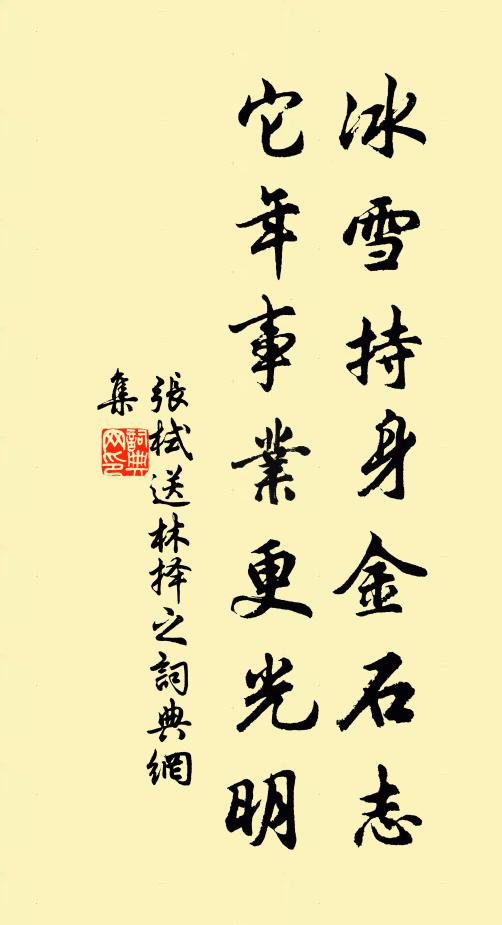 冰雪持身金石志
它年事業更光明
張栻送林择之詞典網
集
詞典网印